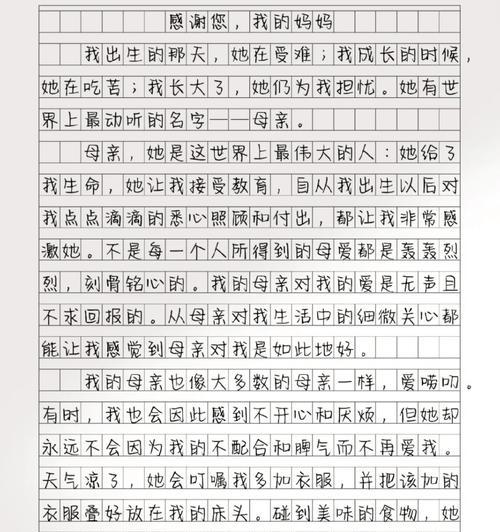 感谢您，我的妈妈
我出生的那天，她在受难；我成长的时候，
她在吃苦；我长大了，她仍为我担忧。她有世
界上最动听的名字——母亲。
母亲，她是这世界上最伟大的人：她给了
我生命，她让我接受教育，自从我出生以后对
我点点滴滴的悉心照顾和付出，都让我非常感
激她。不是每一个人所得到的母爱都是轰轰烈
烈，刻骨铭心的。我的母亲对我的爱是无声且
不求回报的。从母亲对我生活中的细微关心都
能让我感觉到母亲对我是如此地好。
我的母亲也像大多数的母亲一样，爱唠叨。
有时，我也会因此感到不开心和厌烦，但她却
永远不会因为我的不配合和脾气而不再爱我。
天气凉了，她会叮嘱我多加衣服，并把该加的
衣服叠好放在我的床头。碰到美味的食物，她